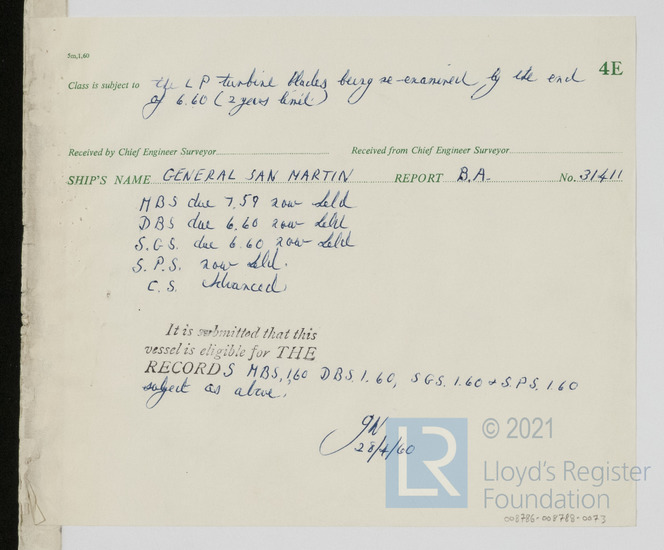 5m,1,60
4E
Class is subject to the L P turbine blades being re-examined by the end
of 6.60 (2 years limit)
Received by Chief Engineer Surveyor
Received from Chief Engineer Surveyor
SHIP'S NAME GENERAL SAN MARTIN REPORT B.A. No. 31411
MBS due 7.59 now held
DBS due 6.60 now held
S.G.S. due 6.60 now held
S.P.S. now held.
C.S. Advanced.
It is submitted that this
vessel is eligible for THE
RECORDS MBS. 1,60 DBS. 1.60, SGS. 1.60 & S.P.S. 1.60
subject as above.
28/4/60
LR
© 2021
Lloyd's Register
Foundation
008786-008788-0073